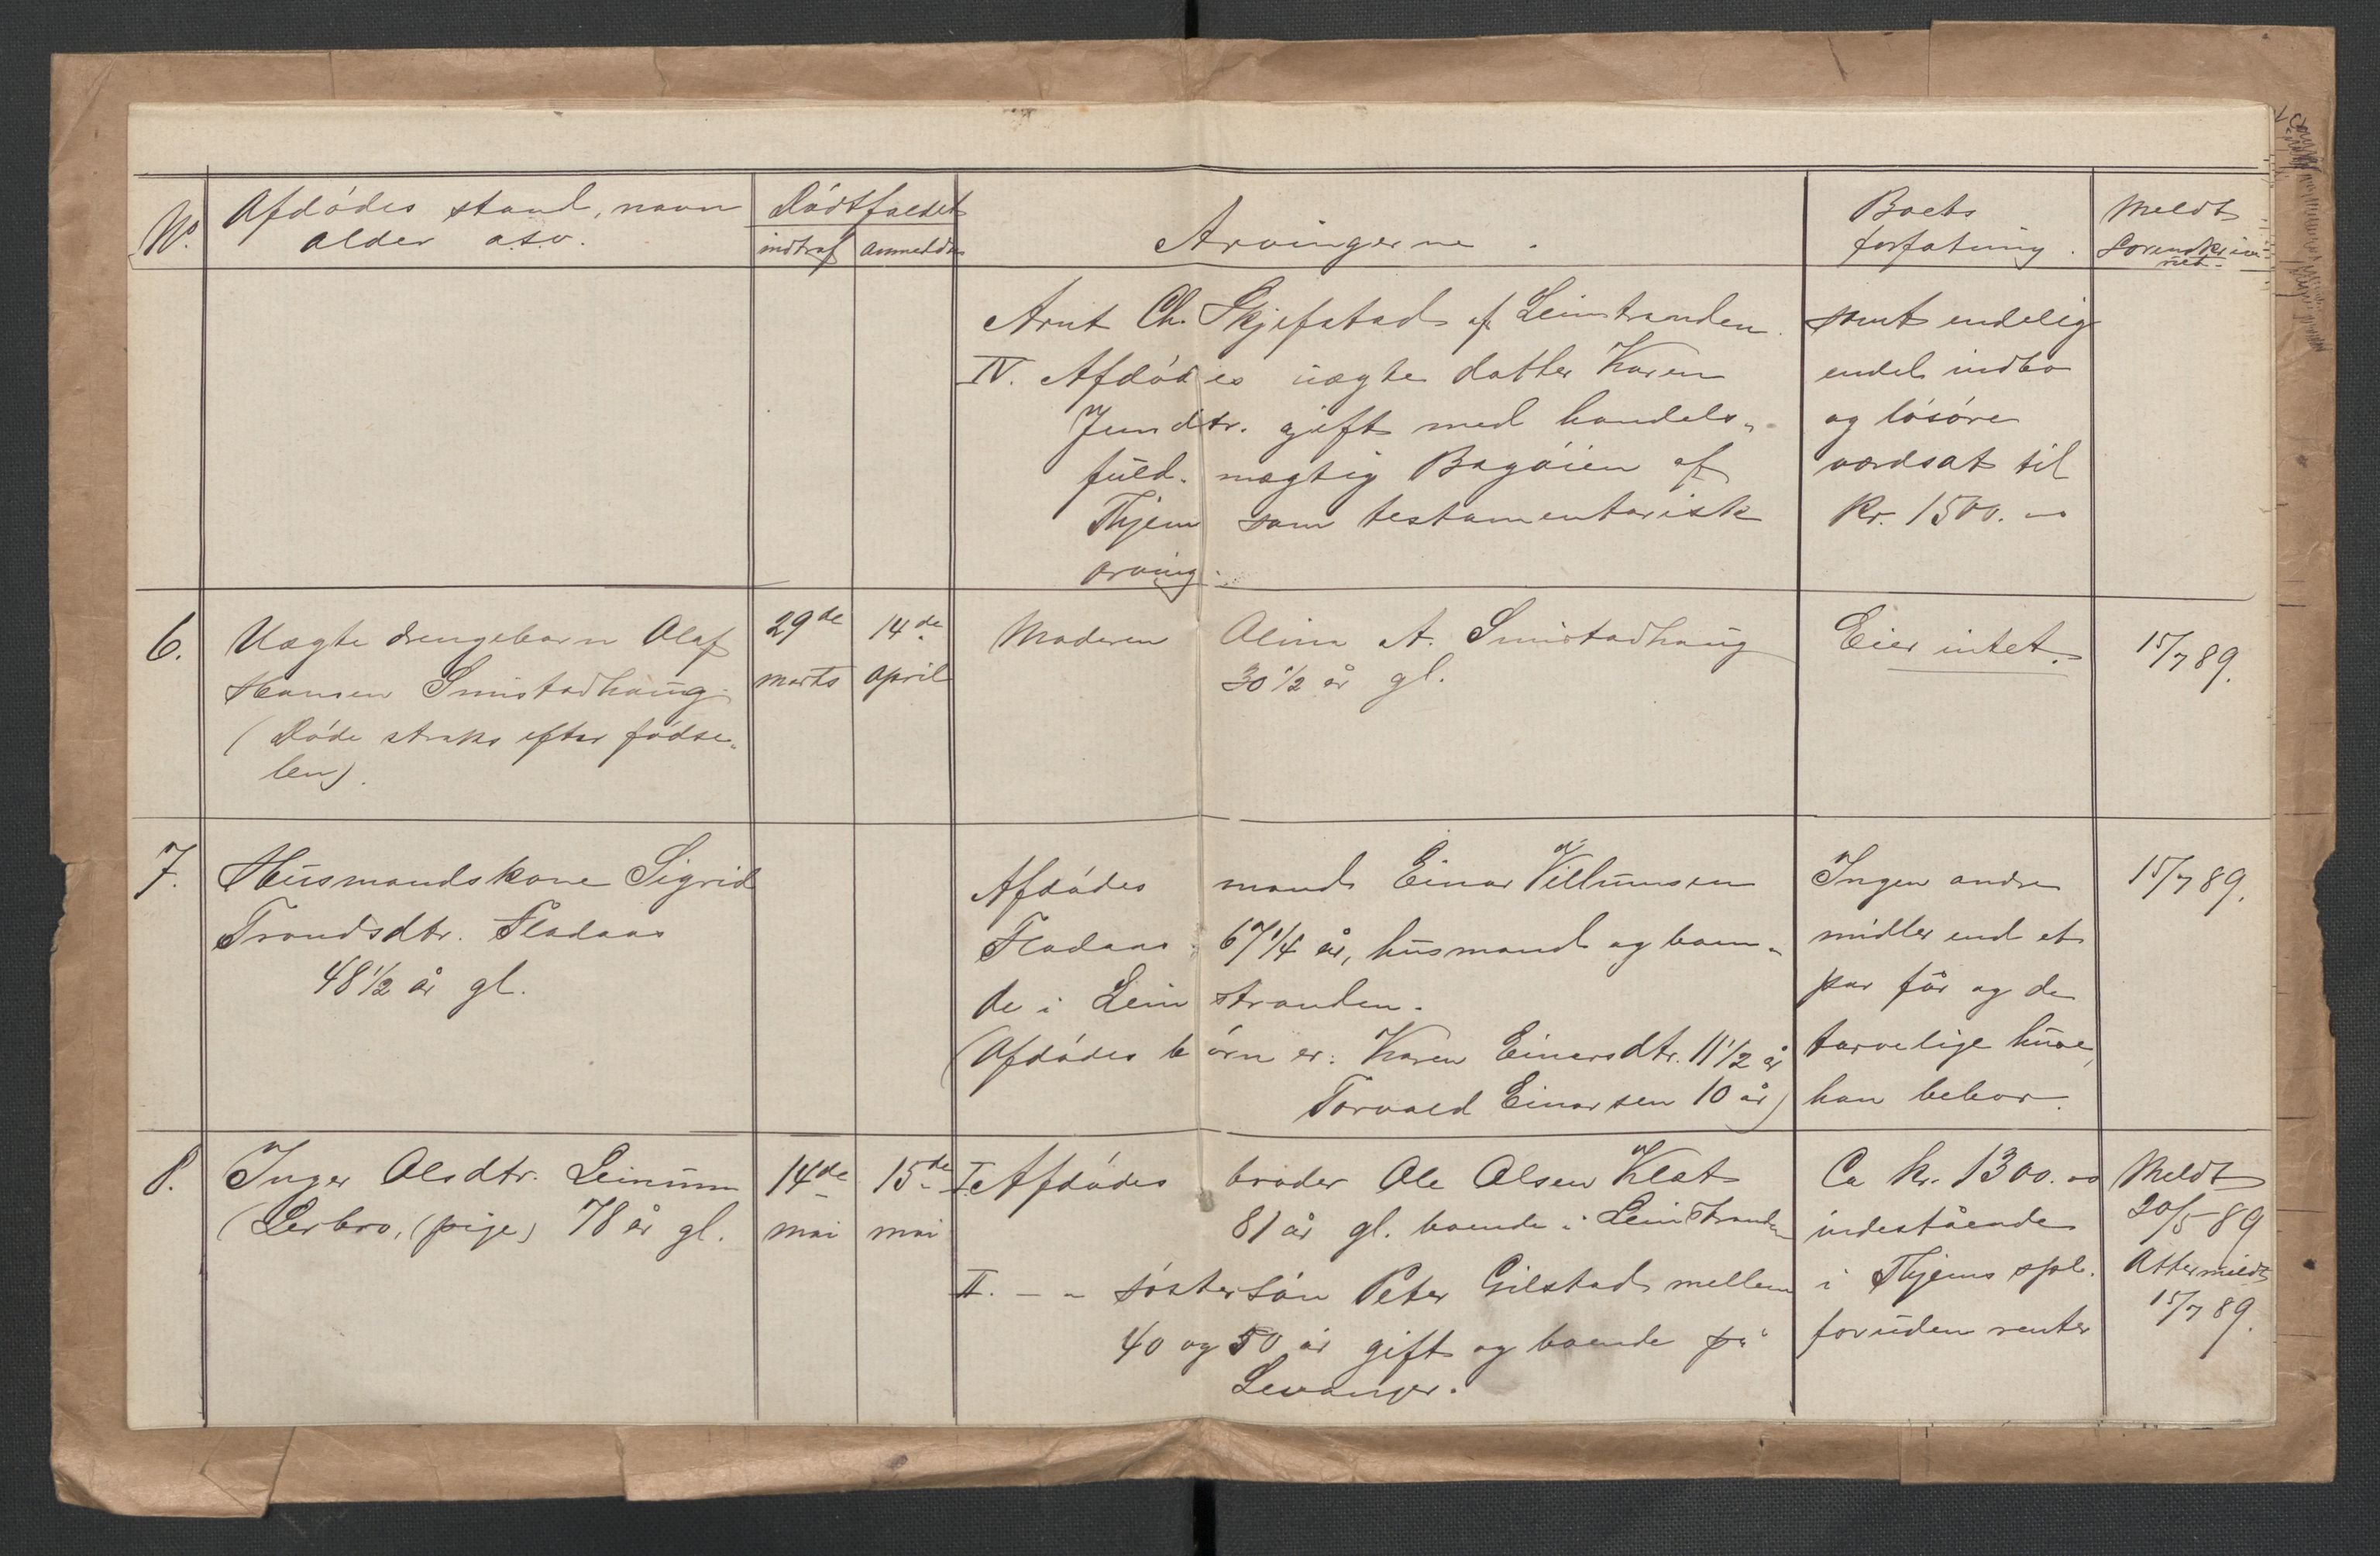 No.
Afdødes stand, navn
alder osv.
Dødsfaldet
indtraf
anmeldtes
Arvingerne.
Boets
forfatning.
Meldt
Sorenskrive-
riet.
Arnt Ch. Skjefstad af Leinstranden.
IV. Afdødes uægte datter Karen
Jensdtr. gift med handels-
fuldmægtig Bagøien af
Thjem som testamentarisk
arving.
samt endelig
endel indbo
og løsøre
værdsat til
Kr. 1500.00
6.
Uægte drengebarn Olaf
Hansen Smistadhaug
(Døde straks efter fødse-
len).
29de
marts
14de
april
Moderen Olina A. Smistadhaug
30 1/2 år gl.
Eier intet.
15/7 89.
7.
Husmandskone Sigrid
Trondsdtr. Fladaas
48 1/2 år gl.
Afdødes mand Einar Villumsen
Fladaas 67 1/4 år, husmand og boen-
de i Leinstranden.
(Afdødes børn er: Karen Einarsdtr. 11 1/2 år
Torvald Einarsen 10 år)
Ingen andre
midler end et
par får og de
tarvelige huse,
han bebor.
15/7 89.
8.
Inger Olsdtr. Leinum
(Lerbro, (pige) 78 år gl.
14de
mai
15de
mai
I. Afdødes broder Ole Olsen Klet
81 år gl. boende i Leinstranden
II. - - søstersøn Peter Gilstad mellem
40 og 50 år gift og boende på
Levanger.
Ca kr. 1300.00
indestående
i Thjems spb.
foruden renter
Meldt
20/5 89
Atter meldt
15/7 89.